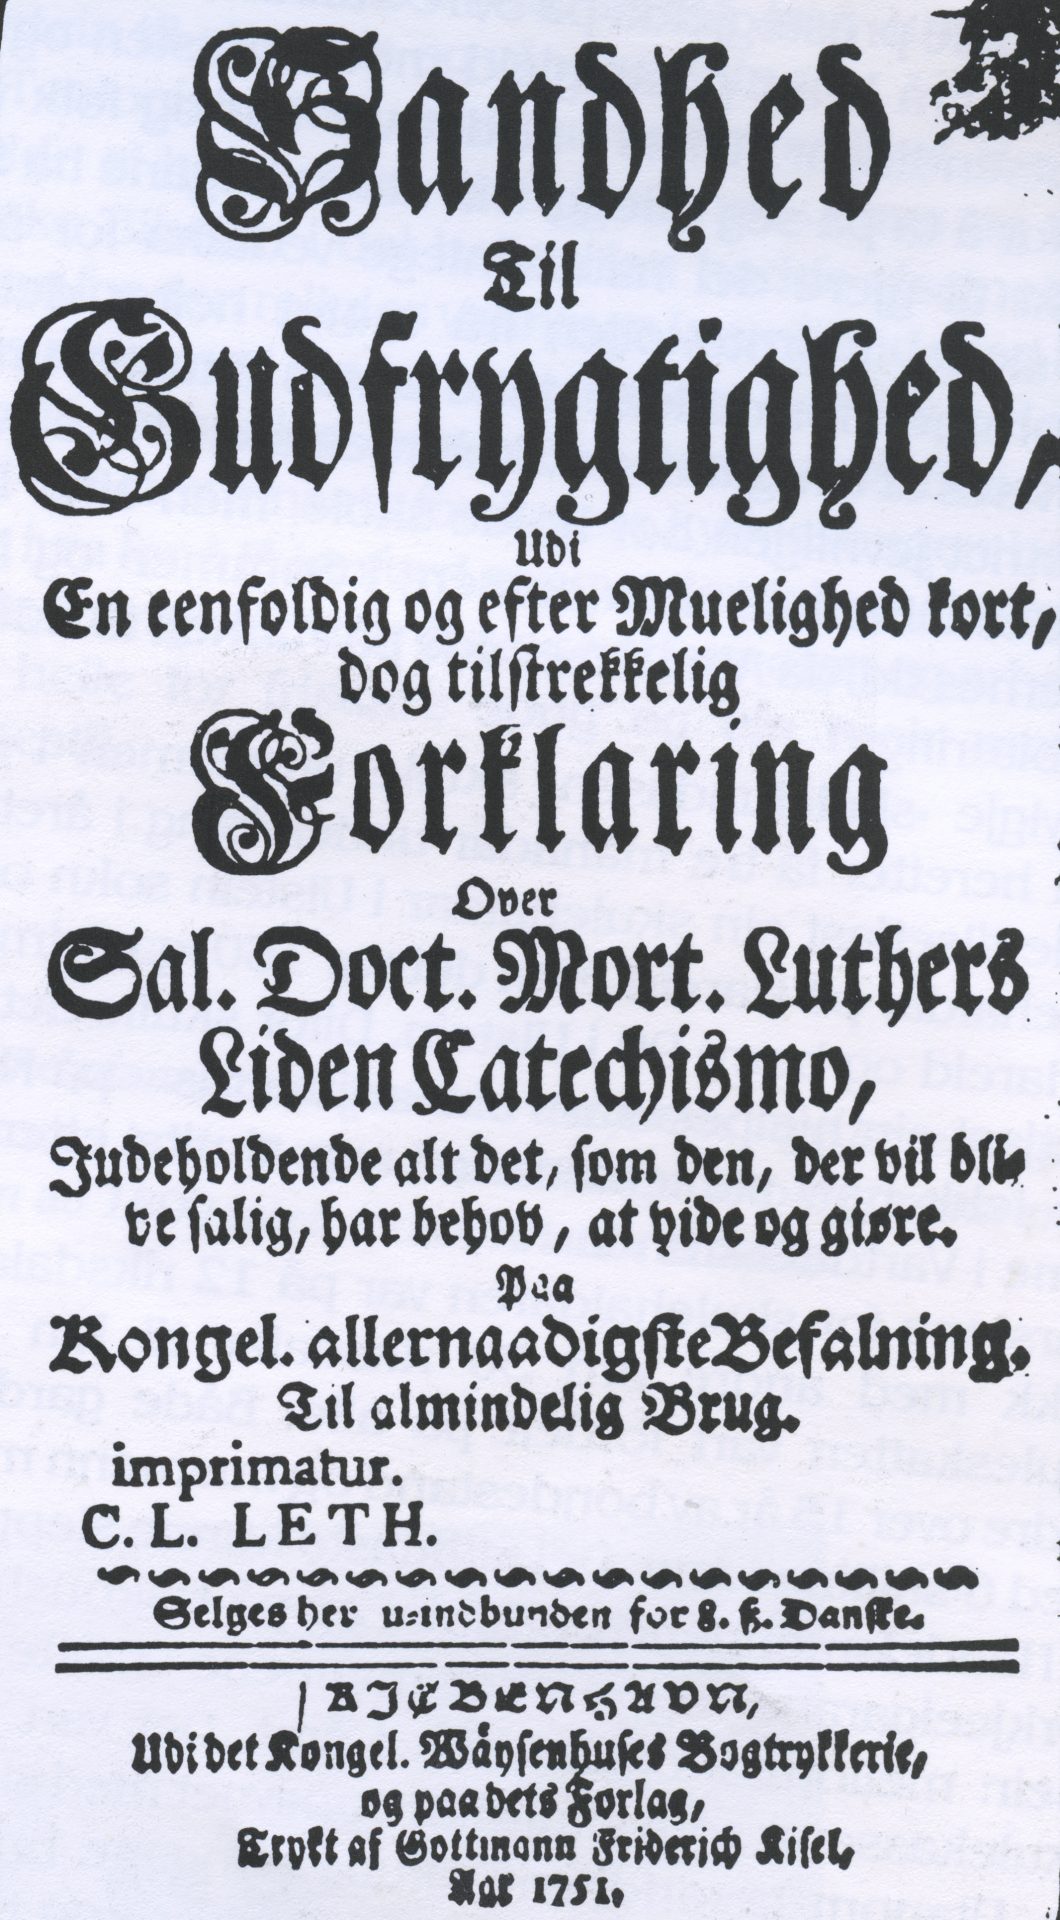 Sandhed
Til
Gudfrygtighed,
Udi
En eenfoldig og efter Muelighed kort,
dog tilstrekkelig
Forklaring
Over
Sal. Doct. Mort. Luthers
Liden Catechismo,
Indeholdende alt det, som den, der vil bli-
ve salig, har behov, at vide og giøre.
Paa
Kongel. allernaadigste Befalning.
Til almindelig Brug.
imprimatur.
C. L. LETH.
Selges her u-indbunden for 8. ß. Danske.
KJØBENHAVN,
Udi det Kongel. Wäysenhuses Bogtrykkerie,
og paa dets Forlag,
Trykt af Gottmann Friderich Kisel,
Aar 1751.